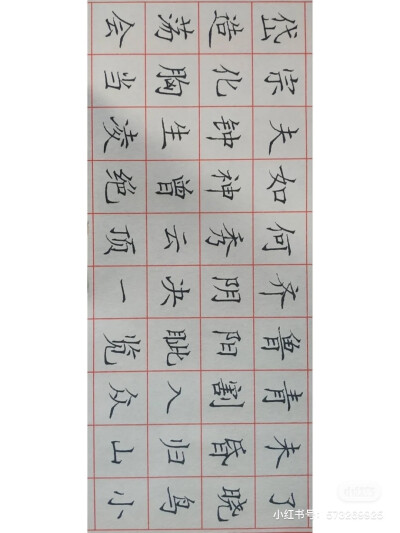 岱宗夫如何齐鲁青未了
造化钟神秀阴阳割昏晓
荡胸生曾云决眦入归鸟
会当凌绝顶一览众山小
小红书
小红书号：